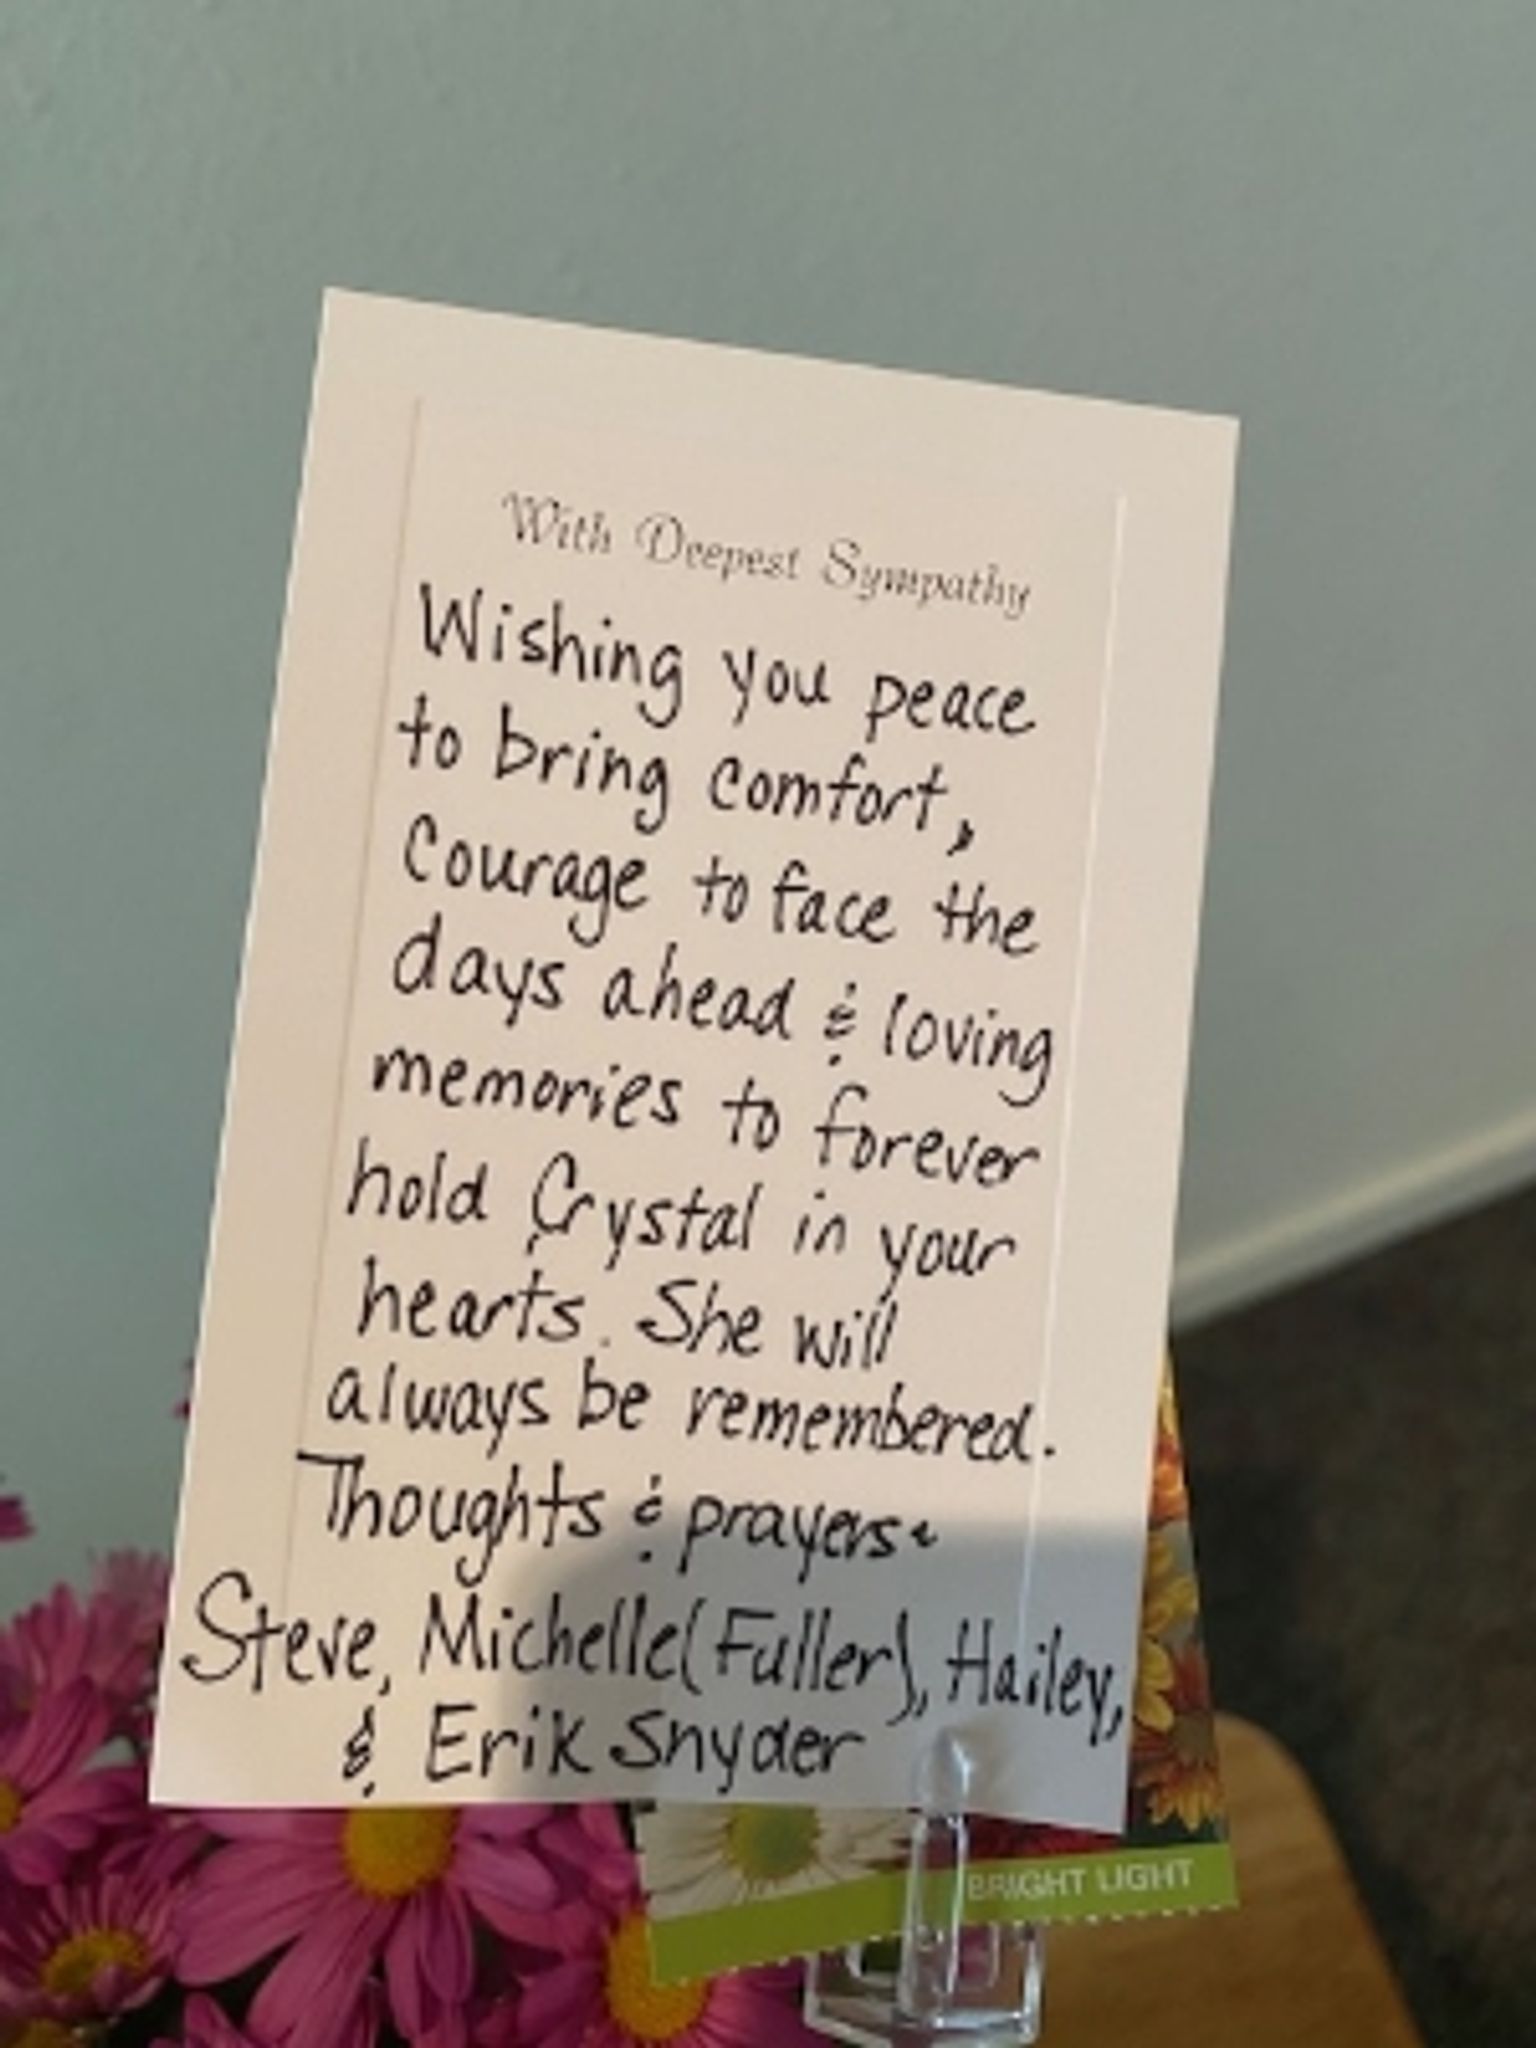 With Deepest Sympathy
Wishing you peace
to bring comfort,
Courage to face the
days ahead & loving
memories to forever
hold Crystal in your
hearts. She will
always be remembered.
Thoughts & prayers~
Steve, Michelle (Fuller), Hailey,
& Erik Snyder
BRIGHT LIGHT